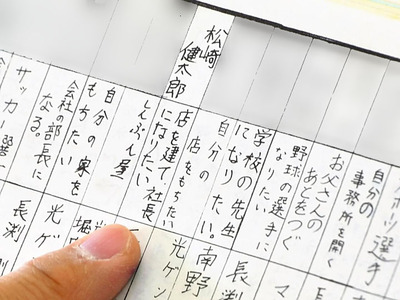 スポーツ選手
自分の
事務所を開く
お父さんの
あとをつぐ
野球の選手に
なりたい
学校の先生
になりたい。
自分の
店をもちたい
松崎
健太郎
店を建て、社長
になりたい
しんぶん屋
自分の家を
もちたい
会社の部長に
なる。
サッカー選
マ
長渕
南野
光ゲン
光ゲ
長渕